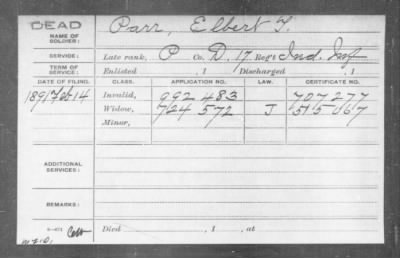 DEAD
NAME OF SOLDIER: Parr, Elbert T.
SERVICE: Late rank, P Co. D, 17 Reg't Ind. Inf
TERM OF SERVICE: Enlisted , 1 Discharged , 1
DATE OF FILING. CLASS. APPLICATION NO. LAW. CERTIFICATE NO.
1891 Feb 14 Invalid, 992 483 707 277
Widow, 724 572 J 515 067
Minor,
ADDITIONAL SERVICES:
REMARKS:
Died , 1 , at